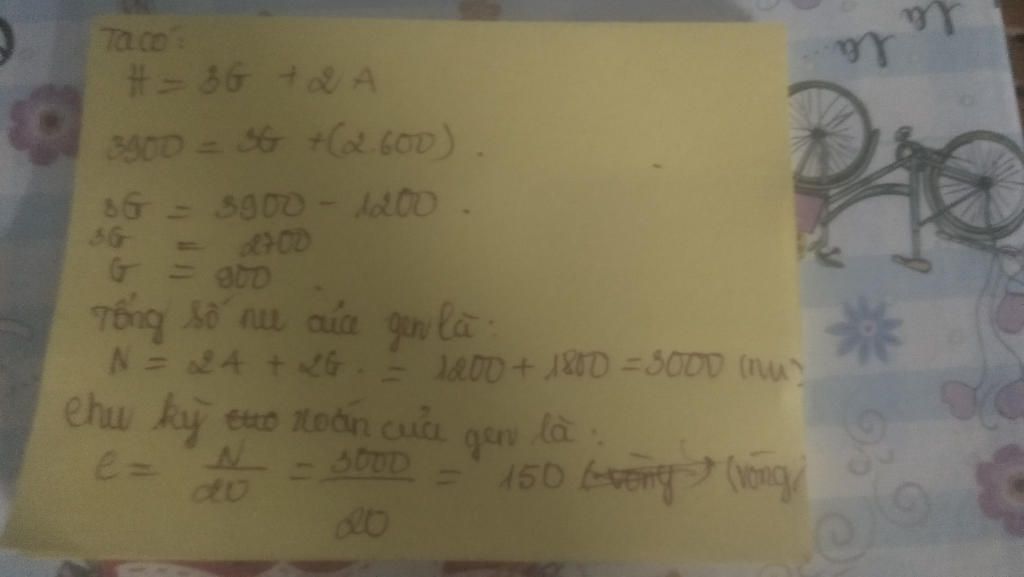 Ta có:
H = 3G + 2A
3900 = 3G + (2.600).
3G = 3900 - 1200.
3G = 2700
G = 900.
Tổng số nu của gen là:
N = 2A + 2G. = 1200 + 1800 = 3000 (nu)
chu kỳ xoắn của gen là:
C = N/20 = 3000/20 = 150 (vòng) (vòng)
la
la...